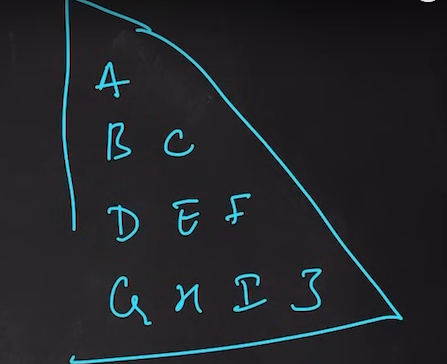 A
B C
D E F
G H I J